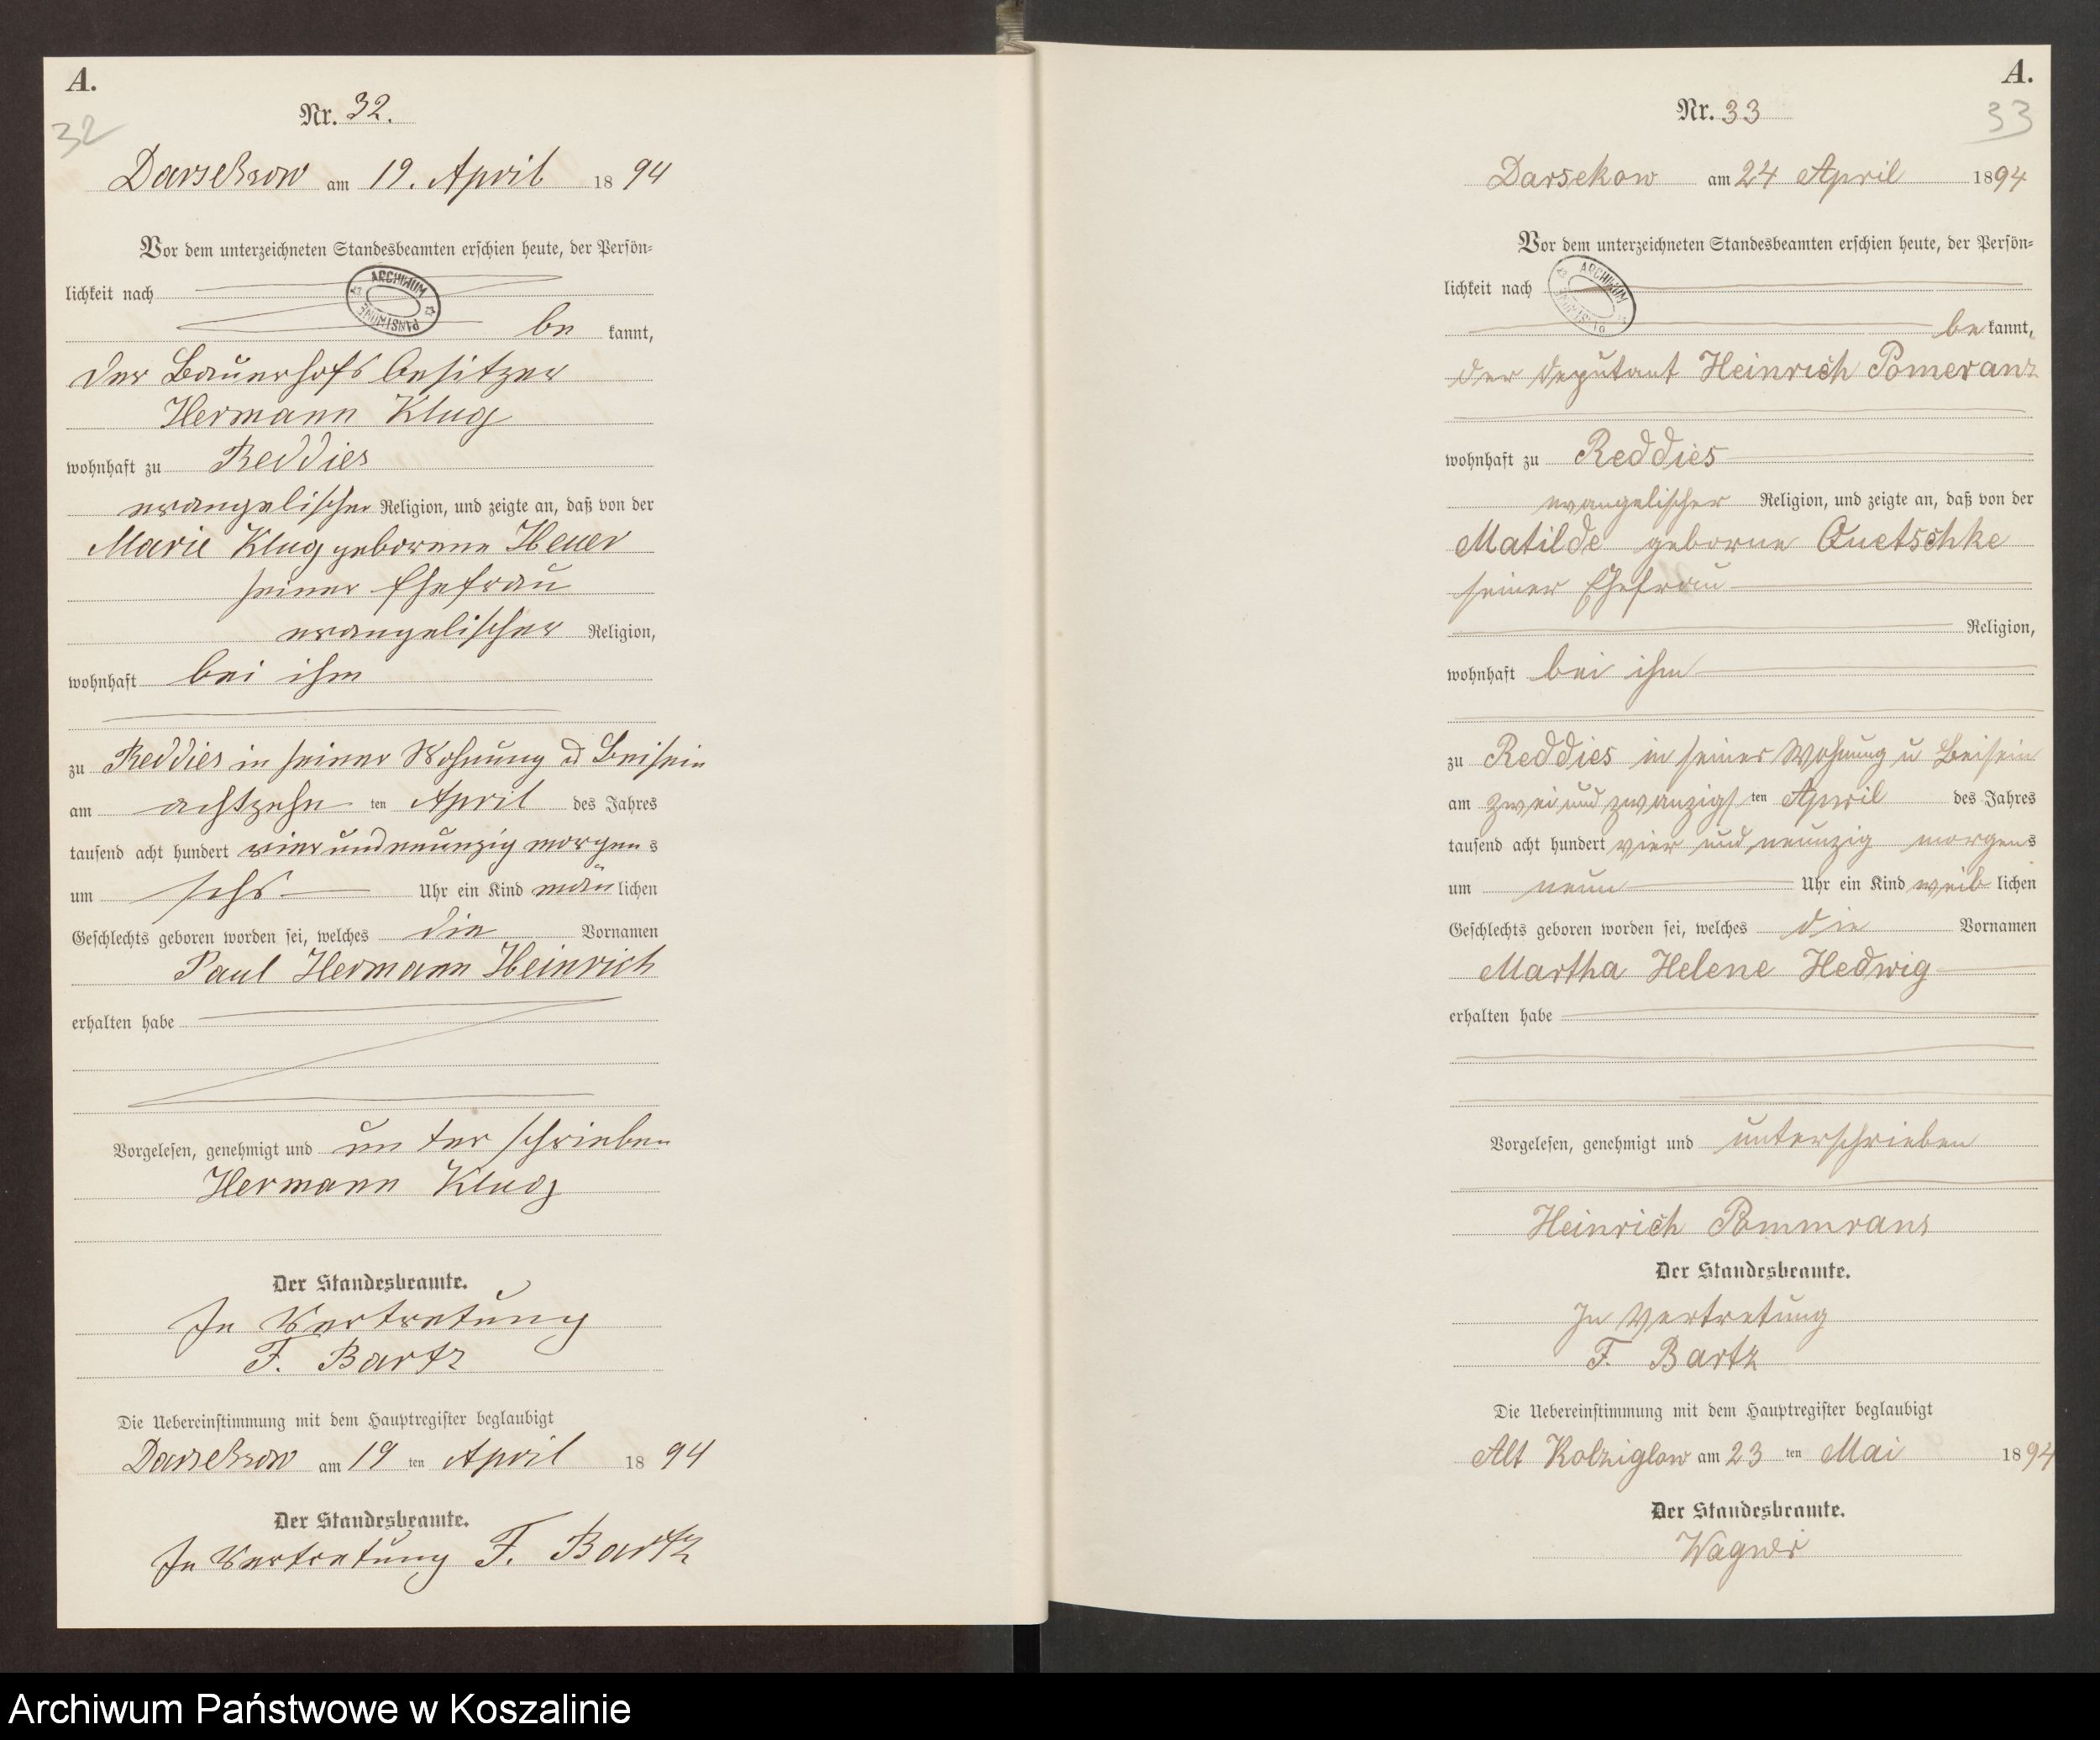 A.
Nr. 32.
32
Darsekow am 19. April 1894
Vor dem unterzeichneten Standesbeamten erschien heute, der Persön-
lichkeit nach
ARCHIWUM PAŃSTWOWE
be kannt,
der Bauerhofsbesitzer
Hermann Klug
wohnhaft zu Reddies
evangelischer Religion, und zeigte an, daß von der
Marie Klug geborene Heuer
seiner Ehefrau
evangelischer Religion,
wohnhaft bei ihm
zu Reddies in seiner Wohnung u Beisein
am achtzehn ten April des Jahres
tausend acht hundert vier und neunzig morgens
um sehs Uhr ein Kind mänlichen
Geschlechts geboren worden sei, welches die Vornamen
Paul Hermann Heinrich
erhalten habe
Vorgelesen, genehmigt und unterschrieben
Hermann Klug
Der Standesbeamte.
In Vertretung
F. Bartz
Die Uebereinstimmung mit dem Hauptregister beglaubigt
Darsekow am 19 ten April 1894
Der Standesbeamte.
In Vertretung F. Bartz
A.
Nr. 33
33
Darsekow am 24 April 1894
Vor dem unterzeichneten Standesbeamten erschien heute, der Persön-
lichkeit nach
ARCHIWUM PAŃSTWOWE
be kannt,
der Deputant Heinrich Pomeranz
wohnhaft zu Reddies
evangelischer Religion, und zeigte an, daß von der
Matilde geborne Quetschke
seiner Ehefrau
Religion,
wohnhaft bei ihm
zu Reddies in seiner Wohnung u Beisein
am zwei und zwanzigs ten April des Jahres
tausend acht hundert vier und neunzig morgens
um neun Uhr ein Kind weiblichen
Geschlechts geboren worden sei, welches die Vornamen
Martha Helene Hedwig
erhalten habe
Vorgelesen, genehmigt und unterschrieben
Heinrich Pommrans
Der Standesbeamte.
In Vertretung
F. Bartz
Die Uebereinstimmung mit dem Hauptregister beglaubigt
Alt Kolziglow am 23 ten Mai 1894
Der Standesbeamte.
Wagner
Archiwum Państwowe w Koszalinie